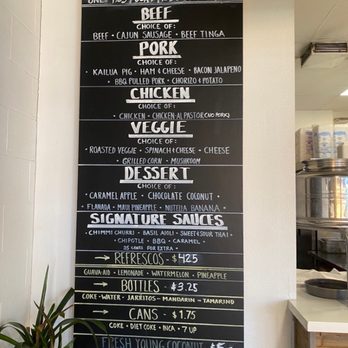 BEEF
CHOICE OF:
BEEF • CAJUN SAUSAGE • BEEF TINGA
PORK
CHOICE OF:
KAILUA PIG • HAM & CHEESE • BACON JALAPENO
BBQ PULLED PORK • CHORIZO & POTATO
CHICKEN
CHOICE OF:
CHICKEN • CHICKEN AL PASTOR (NO PORK)
VEGGIE
CHOICE OF:
ROASTED VEGGIE • SPINACH & CHEESE • CHEESE
GRILLED CORN • MUSHROOM
DESSERT
CHOICE OF:
CARAMEL APPLE • CHOCOLATE COCONUT
MAUI PINEAPPLE • NUTELLA BANANA
SIGNATURE SAUCES
CHIMMI CHURRI • BASIL AIOLI • SWEET & SOUR THAI
CHIPOTLE • BBQ • CARAMEL
35 CENTS FOR EXTRA
REFRESCOS - $4.25
GUAVA AID - LEMONADE - WATERMELON - PINEAPPLE
BOTTLES - $3.25
COKE - WATER - JARRITOS - MANDARIN - TAMARIND
CANS - $1.75
COKE • DIET COKE • INCA • 7 UP
FRESH YOUNG COCONUT